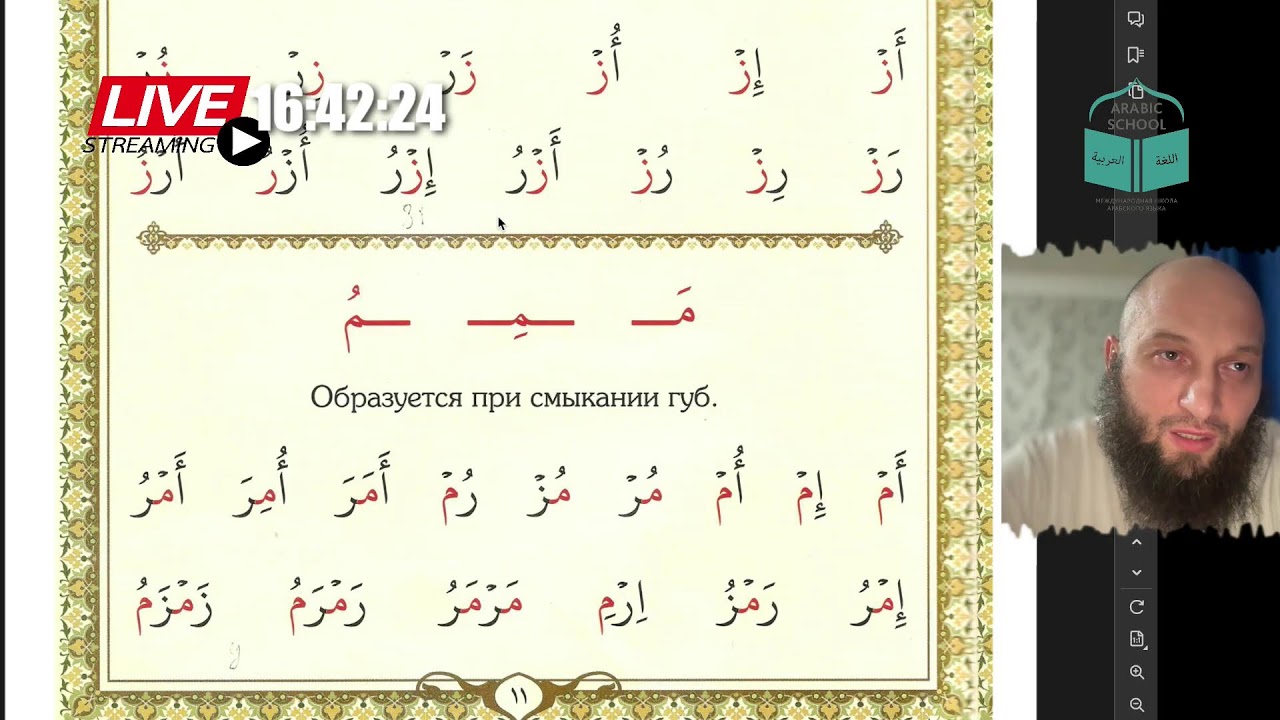 أَزْ إِزْ أُزْ زَرْ زِرْ زُرْ
LIVE 16:42:24
STREAMING
رَزْ رِزْ رُزْ أَزْرُ إِزْرُ أُزْرُ أَرْزُ
مَـ ـمِـ ـمُ
Образуется при смыкании губ.
أَمْ إِمْ أُمْ مُرْ مُزْ رُمْ أَمَرَ أُمِرَ أَمْرُ
إِمْرُ رَمْزُ اِرْمِ مَرْمَرُ رَمْرَمُ زَمْزَمُ
١١
ARABIC
SCHOOL
اللغة العربية
МЕЖДУНАРОДНАЯ ШКОЛА
АРАБСКОГО ЯЗЫКА